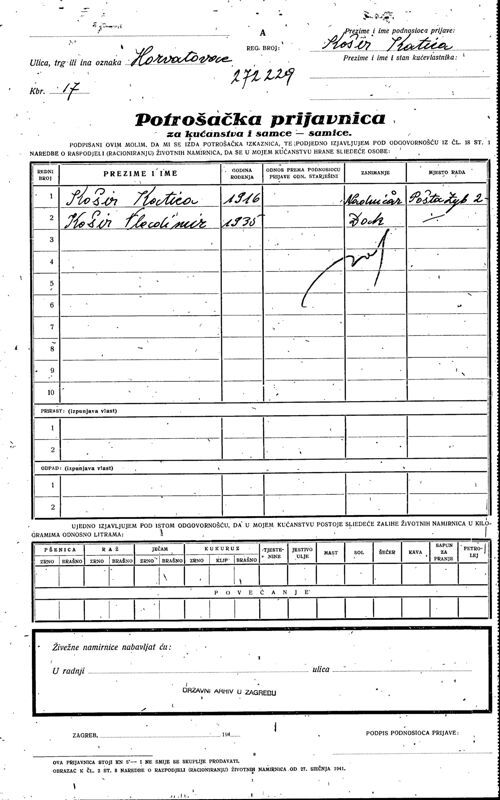 A
REG. BROJ:
Prezime i ime podnosioca prijave:
Košir Katica
Prezime i ime i stan kućevlastnika:
Ulica, trg ili ina oznaka Horvatovac
272229
Kbr. 17
Potrošačka prijavnica
za kućanstva i samce — samice.
PODPISANI OVIM MOLIM, DA MI SE IZDA POTROŠAČKA IZKAZNICA, TE PODJEDNO IZJAVLJUJEM POD ODGOVORNOŠĆU IZ ČL. 18 ST. 1
NAREDBE O RASPODJELI (RACIONIRANJU) ŽIVOTNIH NAMIRNICA, DA SE U MOJEM KUĆANSTVU HRANE SLIEDEĆE OSOBE:
REDNI BROJ PREZIME I IME GODINA ROĐENJA ODNOS PREMA PODNOSIOCU PRIJAVE ODN. STARJEŠINI ZANIMANJE MJESTO RADA
1 Košir Katica 1916 Nadničar Pošta Zgb 2
2 Košir Vladimir 1935 Đach
3
4
5
6
7
8
9
10
PRIRAST: (izpunjava vlast)
1
2
ODPAD: (izpunjava vlast)
1
2
UJEDNO IZJAVLJUJEM POD ISTOM ODGOVORNOŠĆU, DA U MOJEM KUĆANSTVU POSTOJE SLIEDEĆE ZALIHE ŽIVOTNIH NAMIRNICA U KILO-
GRAMIMA ODNOSNO LITRAMA:
PŠENICA RAŽ JEČAM KUKURUZ TJESTE-NINE JESTIVO ULJE MAST SOL ŠEĆER KAVA SAPUN ZA PRANJE PETRO-LEJ
ZRNO BRAŠNO ZRNO BRAŠNO ZRNO BRAŠNO ZRNO KLIP BRAŠNO
POVEĆANJE
Živežne namirnice nabavljat ću:
U radnji ulica
DRŽAVNI ARHIV U ZAGREBU
ZAGREB, 194 PODPIS PODNOSIOCA PRIJAVE:
OVA PRIJAVNICA STOJI KN 1'— I NE SMIJE SE SKUPLJE PRODAVATI.
OBRAZAC K ČL. 2 ST. 8 NAREDBE O RAZPODJELI (RACIONIRANJU) ŽIVOTNIH NAMIRNICA OD 27. SIEČNJA 1941.